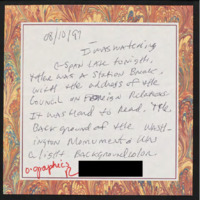 08/10/97
I was watching
C-Span late tonite.
There was a station break,
with the address of the
Council on Foreign Relations
It was hard to read. The
Background of the Wash-
ington Monument has
a light background color.
o-graphics